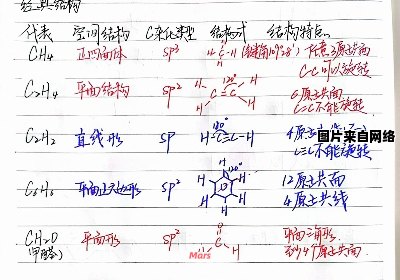 经典结构
代表 空间结构 C杂化类型 结构式 结构特点
CH4 正四面体 sp3 H-C-H (键角109°28') 任意3原子共面
C-C可以旋转
C2H4 平面结构 sp2 H H C=C H H 120° 6原子共面
C=C不能旋转
C2H2 直线形 sp H-C≡C-H 4原子共线
图片来自网络
C≡C不能旋转
C6H6 平面正六边形 sp2 H H H H H H 120° 12原子共面
4原子共线
CH2O 平面形 sp2 O H C H 平面三角形
(甲醛) 4个原子共面
Mars